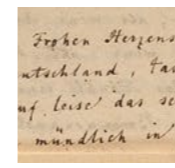 Frohen Herzens
utschland, tau
uf leise das se
mündlich in